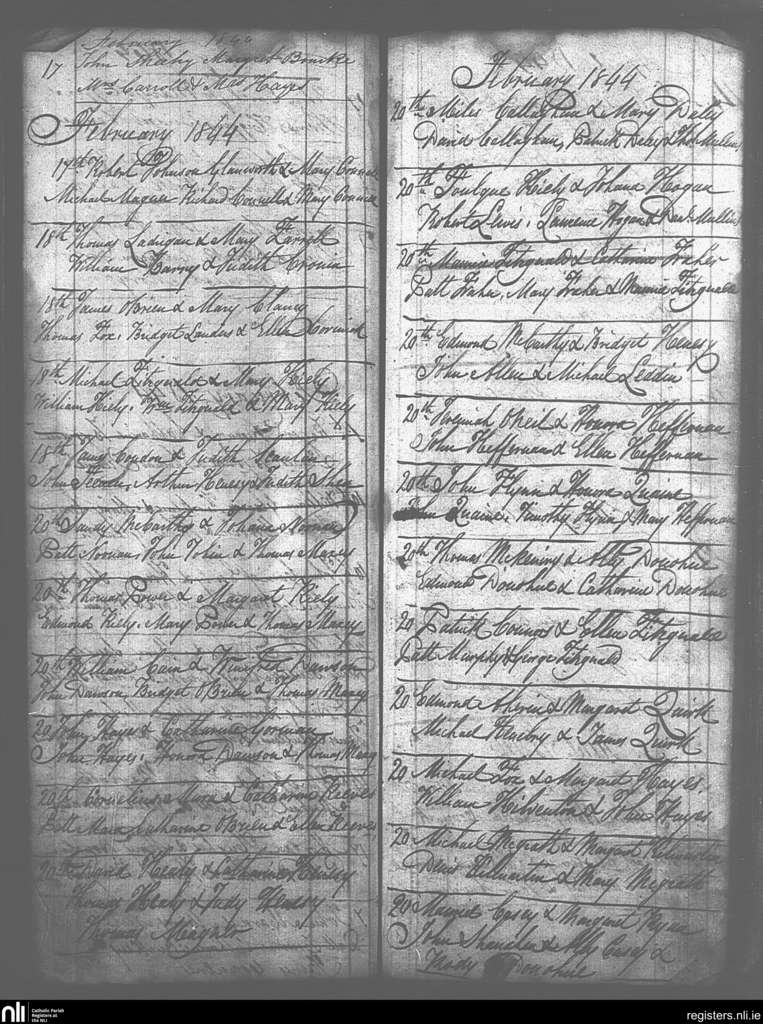 February 1844
17 John Sheehy Margret Bourke
Mrs Carroll & Mrs Hayes
February 1844
17th Robert Johnson Glanworth & Mary
Michael Magrar Richard Connell & Mary
18th Thomas Ladrigan & Mary
William Barry & Judith Cronin
18th James OBrien & Mary Clancy
Thomas Fox, Bridget Landers & Ellen
18th Michael Fitzgerald & Mary Kiely
William Kiely, Wm Fitzgerald & Mary Kiely
18th Condon & Judith Scanlan
John Arthur Henesy & Judith Shea
20th McCarthy & Johana Noonan
Patt Noonan, John Tobin & Thomas Macey
20th Thomas Power & Margaret Kiely
Edmond Kiely, Mary Power & Thomas Macey
20th William Cain & Dawson
John Dawson, Bridget OBrien & Thomas Macey
20 John Hayes & Catharine Gorman
John Hayes, Honora Dawson & Thomas Macey
20th Cornelius & Catharine Reeves
Patt Catharine OBrien & Ellen Reeves
20th David Healy & Catharine
Thomas Healy & Judy Henesy
Thomas Meagher
February 1844
20th Miles Callaghan & Mary Daley
David Callaghan, Patrick Daley & Thos Mullins
20th Foulque Kiely & Johana Hogan
Robert Lewis, Lawrence Hogan & Mullins
20th Maurice Fitzgerald & Catharine Fraher
Patt Fraher, Mary Fraher & Maurice Fitzgerald
20th Edmond McCarthy & Bridget Henesy
John Allen & Michael Leddin
20th Jeremiah ONeil & Honora Heffernan
John Heffernan & Ellen Heffernan
20th John Flynn & Honora Quaine
John Quaine, Timothy Flynn & Mary Heffernan
20th Thomas & Ally Donohue
Edmond Donohue & Catharine Donohue
20 Patrick Connors & Ellen Fitzgerald
Patt Murphy & George Fitzgerald
20 Edmond Aherin & Margaret Quirk
Michael & James Quirk
20 Michael Fox & Margaret Hayes
William & John Hayes
20 Michael Megrath & Margaret
Denis & Mary Megrath
20 Casey & Margaret Ryan
John & Ally Casey &
Donohue
nli Catholic Parish
Registers at
the NLI
registers.nli.ie